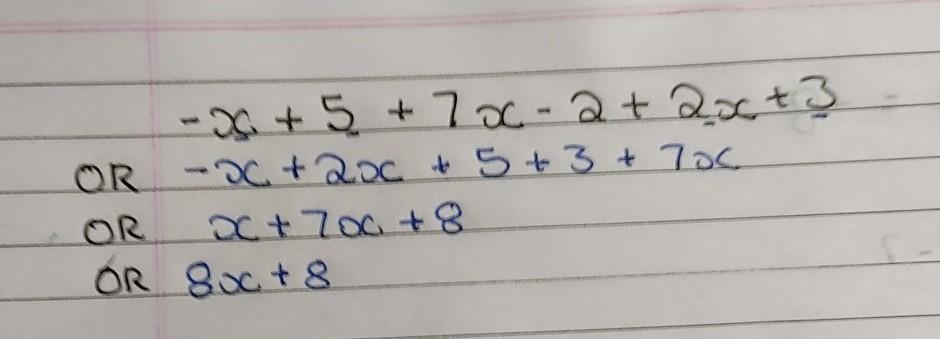 -x + 5 + 7x - 2 + 2x + 3
OR -x + 2x + 5 + 3 + 7x
OR x + 7x + 8
OR 8x + 8